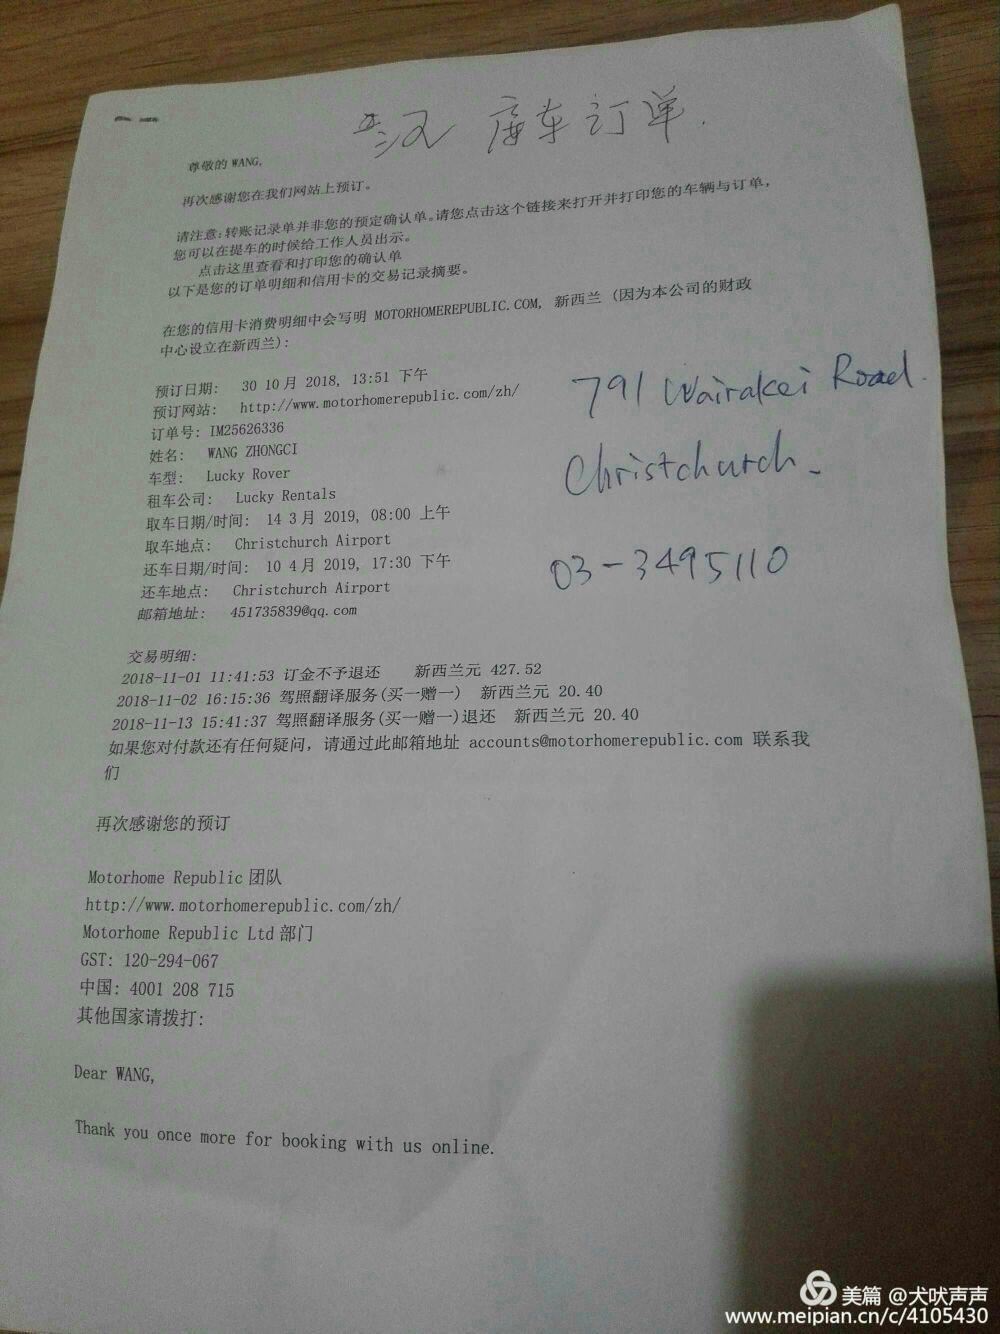 武汉 房车订单.
尊敬的 WANG,
再次感谢您在我们网站上预订。
请注意:转账记录单并非您的预定确认单。请您点击这个链接来打开并打印您的车辆与订单，
您可以在提车的时候给工作人员出示。
点击这里查看和打印您的确认单
以下是您的订单明细和信用卡的交易记录摘要。
在您的信用卡消费明细中会写明 MOTORHOMEREPUBLIC.COM, 新西兰 (因为本公司的财政
中心设立在新西兰):
预订日期: 30 10月 2018, 13:51 下午
预订网站: http://www.motorhomerepublic.com/zh/
订单号: IM25626336
姓名: WANG ZHONGCI
车型: Lucky Rover
租车公司: Lucky Rentals
取车日期/时间: 14 3月 2019, 08:00 上午
取车地点: Christchurch Airport
还车日期/时间: 10 4月 2019, 17:30 下午
还车地点: Christchurch Airport
邮箱地址: 451735839@qq.com
791 Wairakei Road.
Christchurch.
03-3495110
交易明细:
2018-11-01 11:41:53 订金不予退还 新西兰元 427.52
2018-11-02 16:15:36 驾照翻译服务(买一赠一) 新西兰元 20.40
2018-11-13 15:41:37 驾照翻译服务(买一赠一)退还 新西兰元 20.40
如果您对付款还有任何疑问，请通过此邮箱地址 accounts@motorhomerepublic.com 联系我
们
再次感谢您的预订
Motorhome Republic 团队
http://www.motorhomerepublic.com/zh/
Motorhome Republic Ltd 部门
GST: 120-294-067
中国: 4001 208 715
其他国家请拨打:
Dear WANG,
Thank you once more for booking with us online.
美篇 @犬吠声声
www.meipian.cn/c/4105430